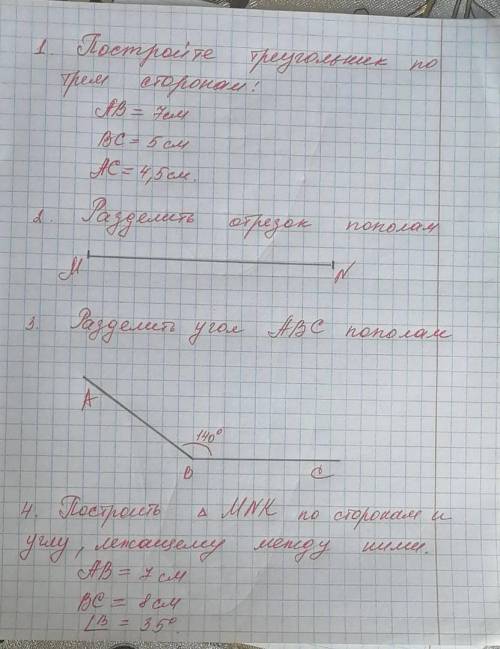 1. Постройте треугольник по
трем сторонам:
AB = 7см
BC = 5 см
AC = 4,5см.
2. Разделить отрезок пополам
M N
3. Разделить угол ABC пополам
A
140°
B C
4. Построить △ MNK по сторонам и
углу, лежащему между ними.
AB = 7 см
BC = 8 см
∠B = 35°.